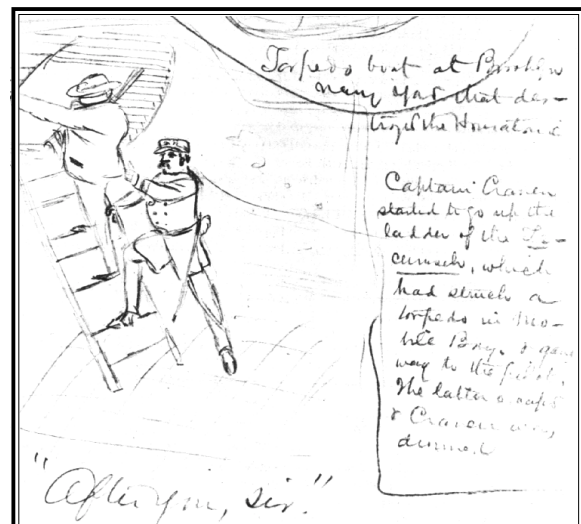 Torpedo boat at Brooklyn
navy yard that des-
troyed the Housatonic
Captain Craven
started to go up the
ladder of the Te-
cumseh, which
had struck a
torpedo in Mo-
bile Bay, & gave
way to the pilot.
The latter escaped
& Craven was
drowned
"After you, sir."